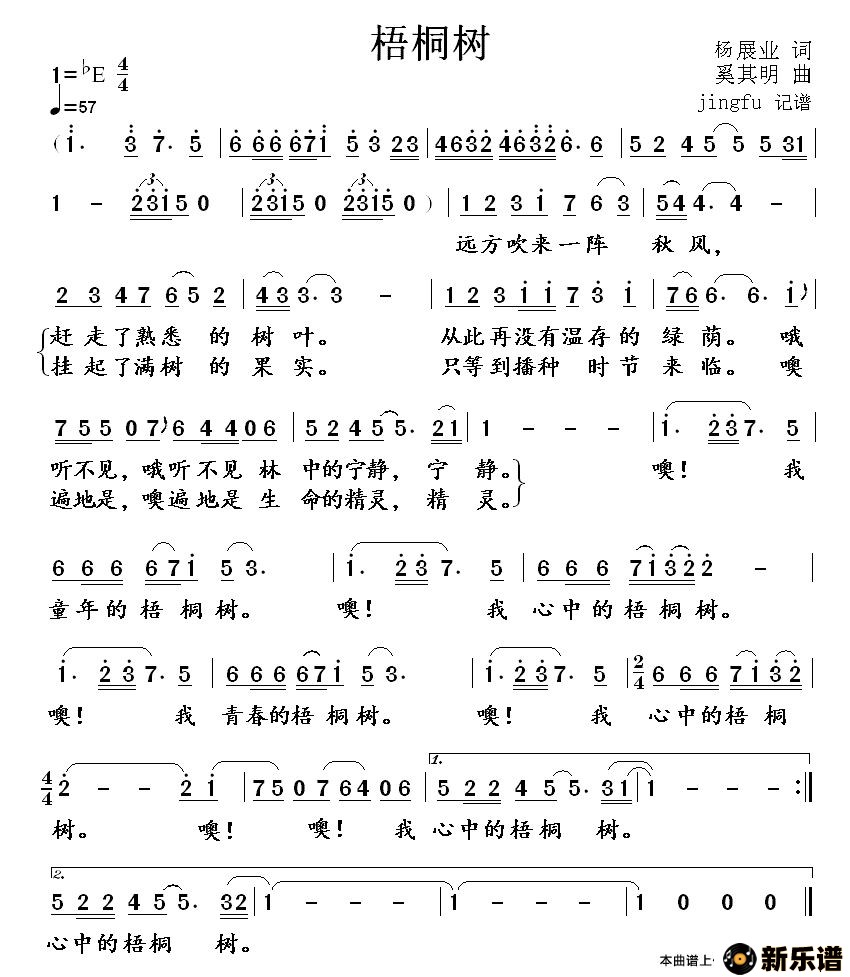 梧桐树
杨展业 词
1=♭E 4/4
奚其明 曲
♩=57
jingfu 记谱
(1. 3 7. 5 | 6 66 671 5 3 23 | 4632 46326. 6 | 5 2 4 5 5 531 |
1 - 23150 | 23150 23150 ) | 1 2 3 1 7 6 3 | 544. 4 - |
远方吹来一阵 秋风,
2 3 4 7 6 5 2 | 4 3 3. 3 - | 1 2 3 1 1 7 3 1 | 7 6 6. 6. 1 |
赶走了熟悉 的树叶。 从此再没有温存的绿荫。哦
挂起了满树 的果实。 只等到播种 时节来临。噢
7 5 5 0 7 6 4 4 0 6 | 5 2 4 5 5. 2 1 | 1 - - - | 1. 2 3 7. 5 |
听不见,哦听不见林 中的宁静,宁 静。 噢! 我
遍地是,噢遍地是生 命的精灵,精 灵。
6 6 6 6 7 1 5 3. | 1. 2 3 7. 5 | 6 6 6 7 1 3 2 2 - |
童年的梧桐树。 噢! 我 心中的梧桐树。
1. 2 3 7. 5 | 6 6 6 6 7 1 5 3. | 1. 2 3 7. 5 | 2/4 6 6 6 7 1 3 2 |
噢! 我 青春的梧桐树。 噢! 我 心中的梧桐
1.
4/4 2 - - 2 1 | 7 5 0 7 6 4 0 6 | 5 2 2 4 5 5. 3 1 | 1 - - - :|
树。 噢! 噢!我 心中的梧桐 树。
2.
5 2 2 4 5 5. 3 2 | 1 - - - | 1 - - - | 1 0 0 0 |
心中的梧桐 树。
本曲谱上· 新乐谱